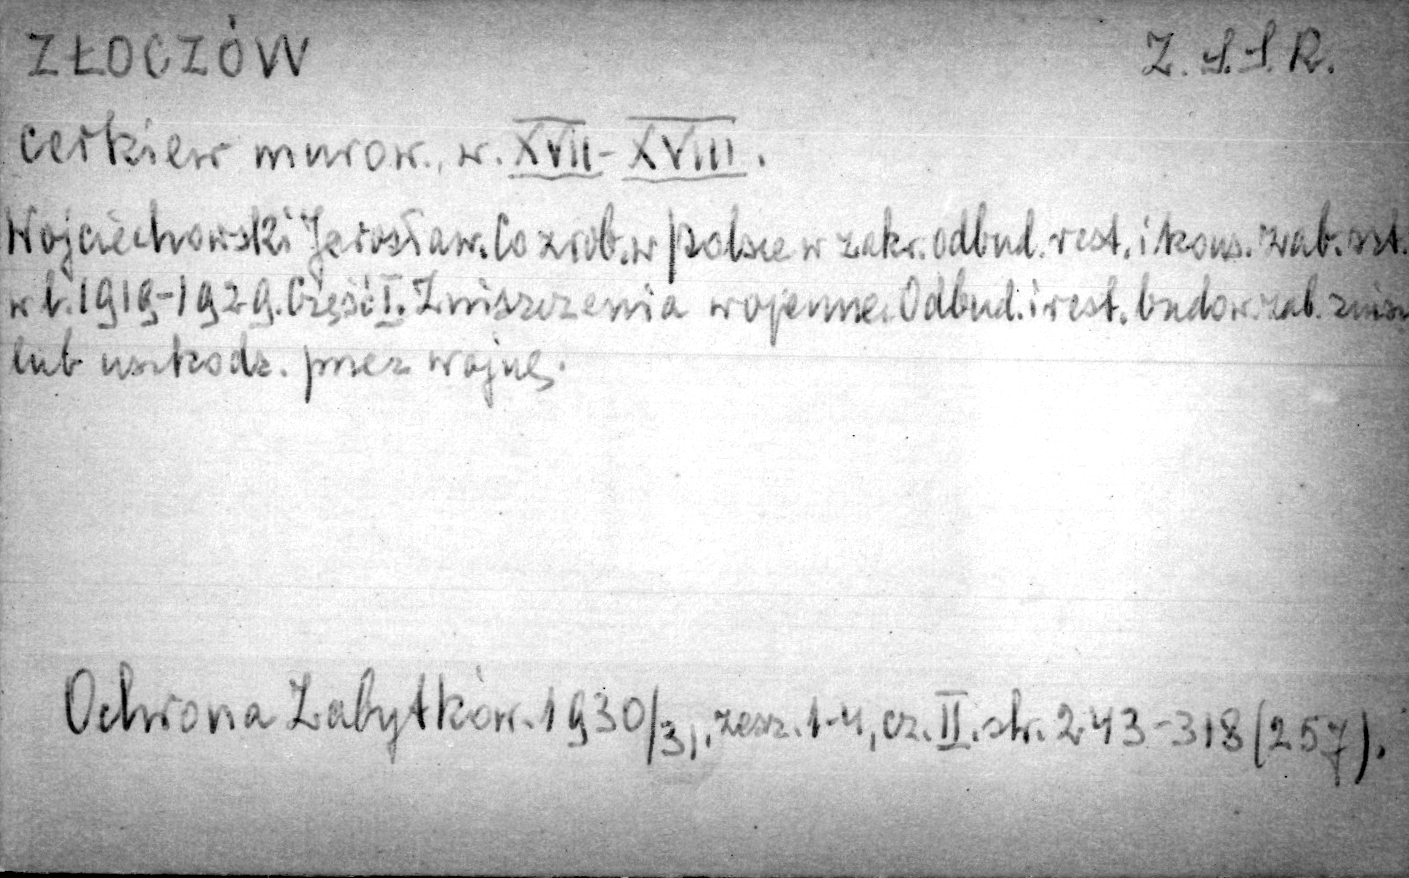 ZŁOCZÓW Z.S.S.R.
cerkiew murow., w. XVII-XVIII.
Wojciechowski Jarosław. Co zrob. w Polsce w zakr. odbud. rest. i kons. zab. szt.
w l. 1919-1929. Część I. Zniszczenia wojenne. Odbud. i rest. budow. zab. zniszcz
lub uszkodz. przez wojnę.
Ochrona Zabytków. 1930/31, zesz. 1-4, cz. II. str. 243-318 (257).